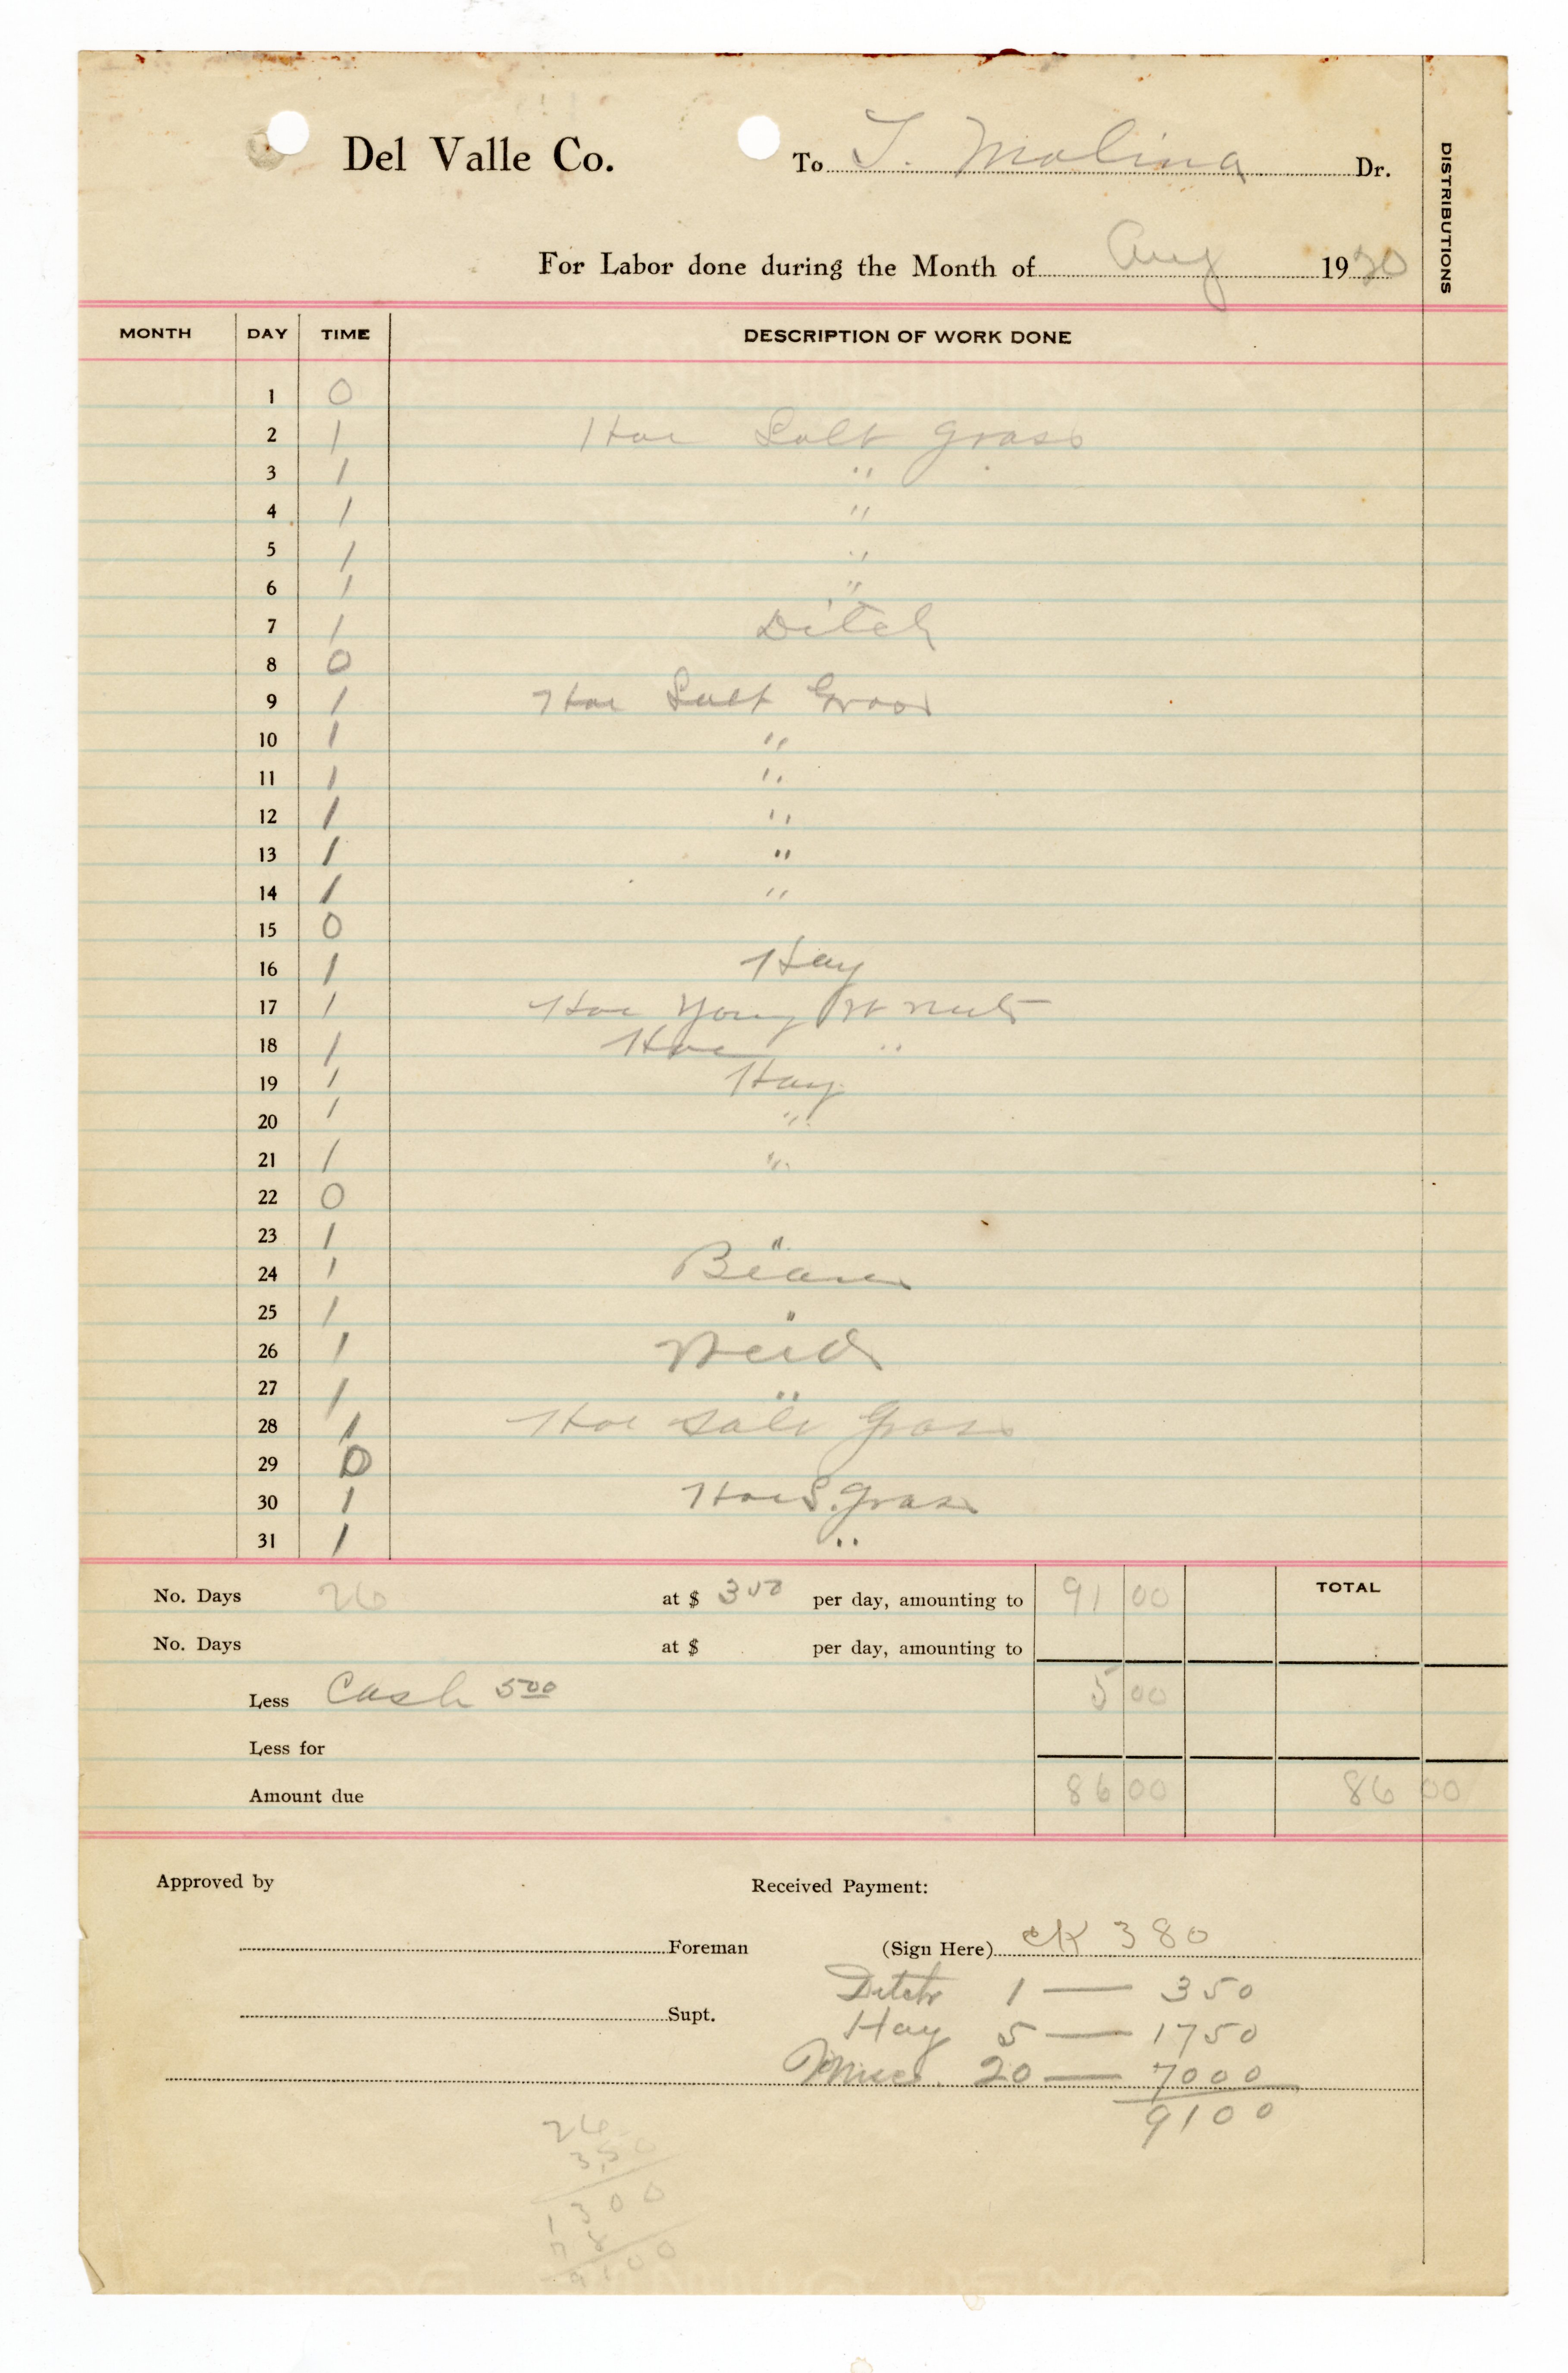 Del Valle Co. To T. Molina Dr.
DISTRIBUTIONS
For Labor done during the Month of Aug 1920
MONTH DAY TIME DESCRIPTION OF WORK DONE
1 0
2 1 Hoe Salt grass
3 1 "
4 1 "
5 1 "
6 1 "
7 1 Ditch
8 0
9 1 Hoe Salt Grass
10 1 "
11 1 "
12 1 "
13 1 "
14 1 "
15 0
16 1 Hay
17 1 Hoe Young W nuts
18 1 Hoe "
19 1 Hay
20 1 "
21 1 "
22 0
23 1 "
24 1 Beans
25 1 "
26 1
27 1 "
28 1 Hoe Salt Grass
29 0
30 1 Hoe S. grass
31 1 "
No. Days 26 at $ 350 per day, amounting to 91 00 TOTAL
No. Days at $ per day, amounting to
Less Cash 500 5 00
Less for
Amount due 86 00 86 00
Approved by Received Payment:
Foreman (Sign Here) ck 380
Ditch 1 — 350
Supt.
Hay 5 — 1750
Misc. 20 — 7000
9100
26
3.50
1300
78
9100